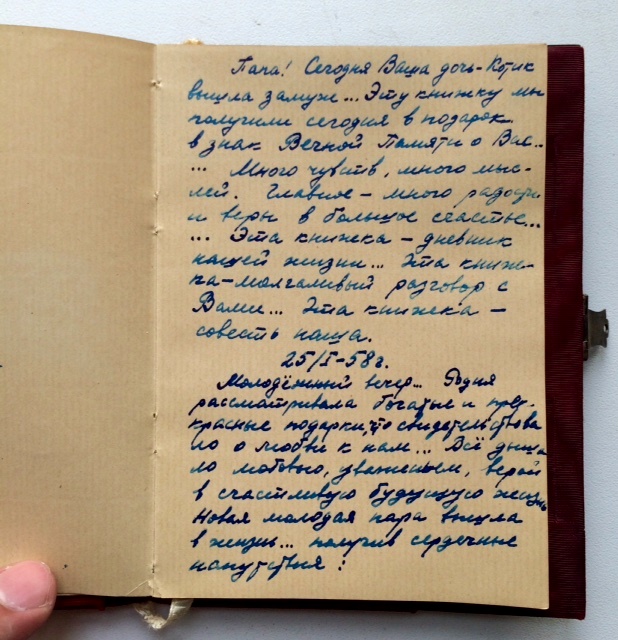 Папа! Сегодня Ваша дочь-Котик
вышла замуж... Эту книжку мы
получили сегодня в подарок
в знак Вечной Памяти о Вас...
... Много чувств, много мыс-
лей. Главное – много радости
и веры в большое счастье...
... Эта книжка – дневник
нашей жизни... Эта книж-
ка-молчаливый разговор с
Вами... Эта книжка –
совесть наша.
25/I-58г.
Молодёжный вечер... Родня
рассматривала богатые и прек-
красные подарки, что свидетельствова
ло о любви к нам... Всё дыша
ло любовью, уважением, верой
в счастливую будущую жизнь
Новая молодая пара вышла
в жизнь... получив сердечные
напутствия: